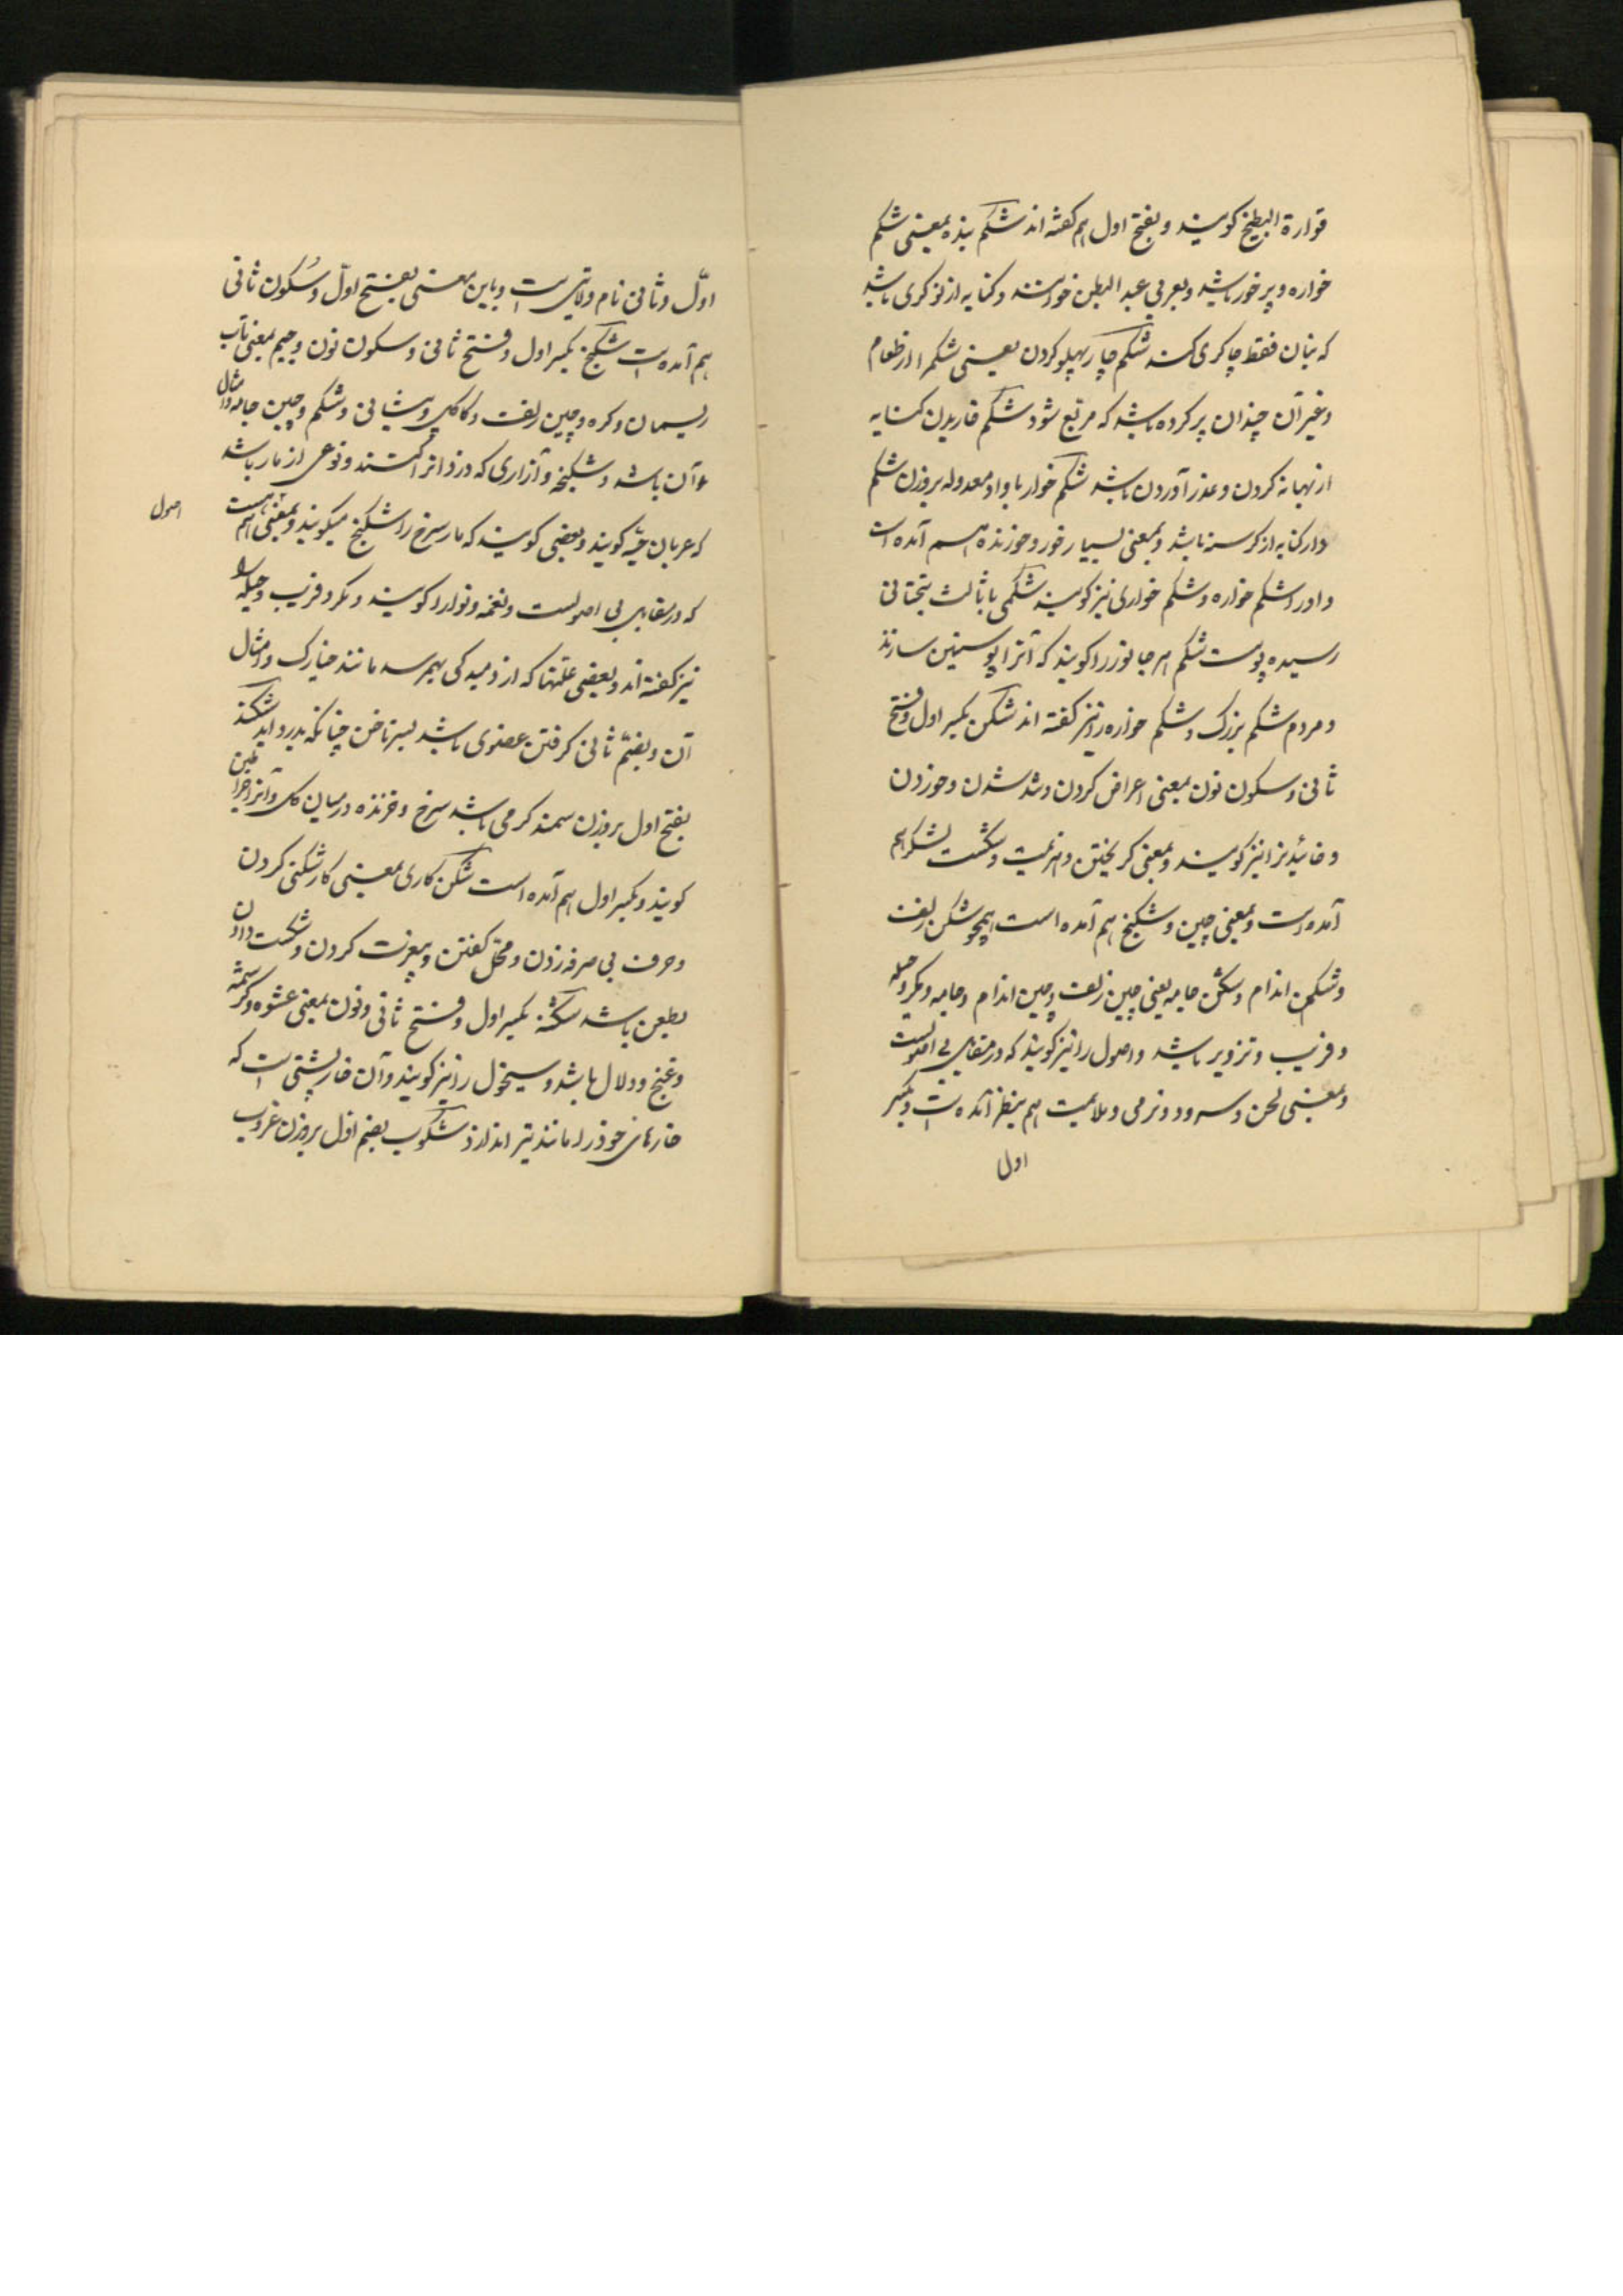 قوارة البطیخ کویند و بفتح اول هم کفته اند شکم بنده بمعنی شکم
خواره و پر خور باشد و بعربی عبد البطن خوانند و کنایه از نوکری باشد
که بنان فقط چاکری کند شکم چار پهلو کردن یعنی شکم را از طعام
و غیر آن چندان پر کرده باشد که مربع شود شکم خاریدن کنایه
از بهانه کردن و عذر آوردن باشد شکم خوار با واو معدوله بروزن شکم
دار کنایه از کرسنه باشد و بمعنی بسیار خور و خورنده هم آمده است
و او را شکم خواره و شکم خواری نیز کویند شکمی با ثالث بتحتانی
رسیده پوست شکم هر جانور را کویند که آنرا پوستین سازند
و مردم شکم بزرک و شکم خواره را نیز کفته اند شکن بکسر اول و فتح
ثانی و سکون نون بمعنی اعراض کردن و شدن و خوردن
و خائیدن را نیز کویند و بمعنی کریختن و هزیمت و شکست لشکر هم
آمده است و بمعنی چین و شکنج هم آمده است همچو شکن زلف
و شکن اندام و شکن جامه یعنی چین زلف و چین اندام و جامه و مکر و حیله
و فریب و تزویر باشد و اصول را نیز کویند که در مقابل بی اصولست
و بمعنی لحن و سرود و نرمی و ملایمت هم بنظر آمده است و بکسر
اول
اوّل و ثانی نام ولایتی است و باین معنی بفتح اوّل و سُکون ثانی
هم آمده است شکنج بکسر اول و فتح ثانی و سکون نون و جیم بمعنی تاب
ریسمان و کره و چین زلف و کاکل و پیشانی و شکم و چین جامه و امثال
آن باشد و شکنجه و آزاری که دزدانرا کنند و نوعی از مار باشد
که عربان حیّه کویند و بعضی کویند که مار سرخ را شکنج میکویند و بمعنی هم
اصول
که در مقابل بی اصولست و نغمه و نوا را کویند و مکر و فریب و حیله را
نیز کفته اند و بعضی علتها که از دمیدکی بهم رسد مانند خیارک و امثال
آن و بضمّ ثانی کرفتن عضوی باشد بسر ناخن چنانکه بدرد آید شکند
بفتح اول بروزن سمند کرمی باشد سرخ و خزنده در میان کل و آنرا خراطین
کویند و بکسر اول هم آمده است شکن کاری بمعنی کار شکنی کردن
و حرف بی صرفه زدن و مخل کفتن و بیعزت کردن و شکست دادن
بطعن باشد شکنه بکسر اول و فتح ثانی و نون بمعنی عشوه و کرشمه
و غنج و دلال باشد و سیخول را نیز کویند و آن خارپشتی است که
خارهای خود را مانند تیر اندازد شکوب بضم اول بروزن غروب